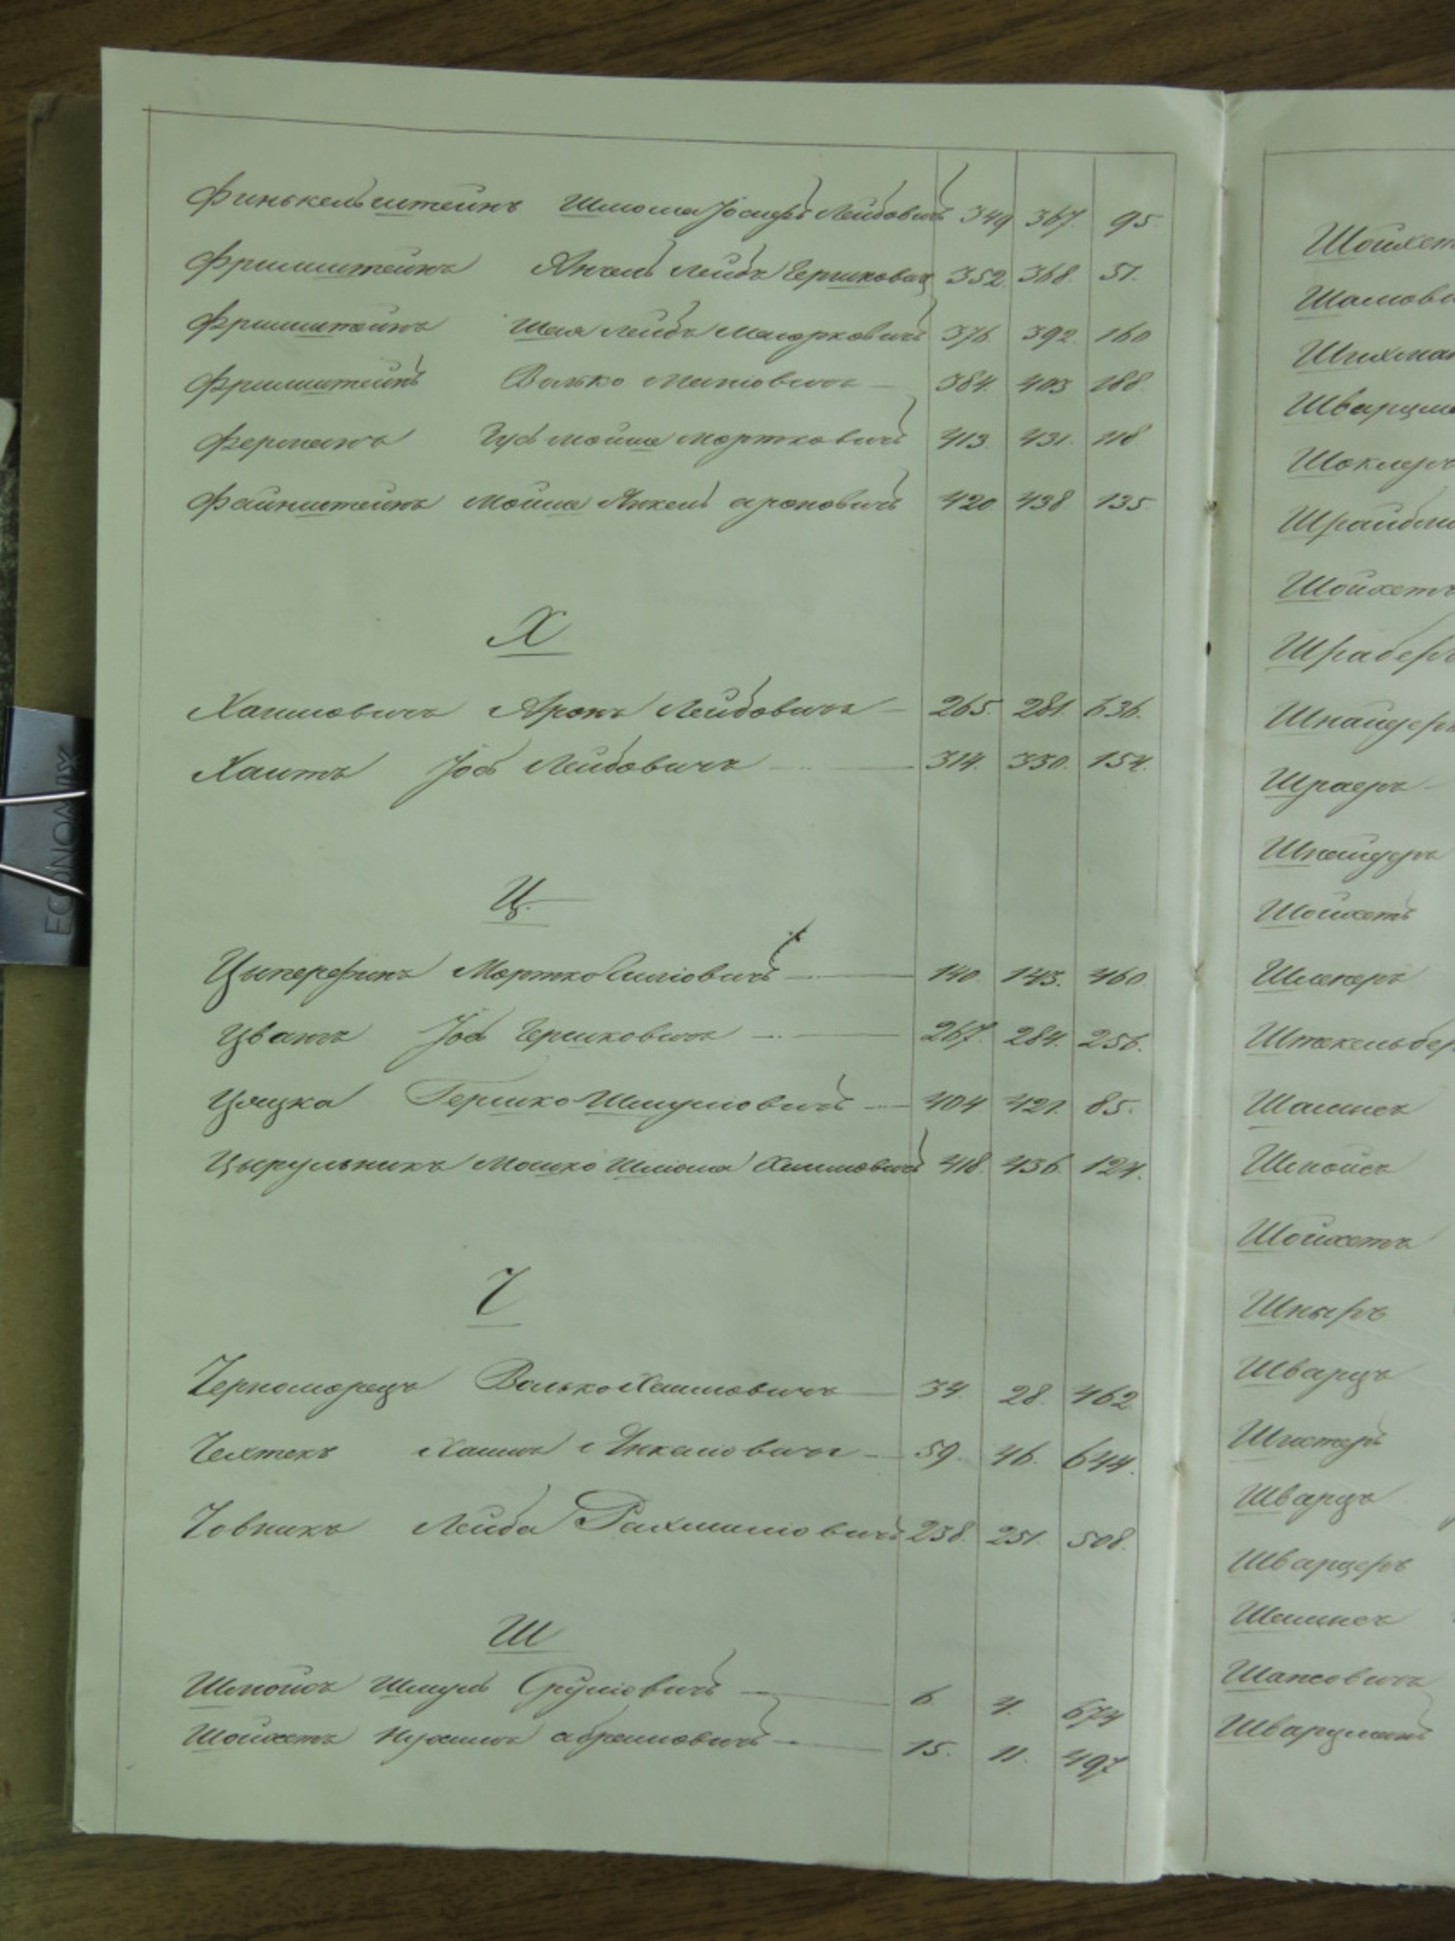 Финькельштейнъ Шлома Іосифъ Лейбовичъ 349 367. 95
Фришштейнъ Янкель Лейба Гершкович 352. 368. 51.
Фришштейнъ Шая Лейбъ Меюрковичъ 376. 392. 160
Фришштейнъ Волько 384. 403 188.
Ферманъ Гусъ Мойше Мортковичъ 413. 431. 118
Файнштейнъ Мойше Янкель Ароновичъ 420 438. 135.
Х
Хаимовичъ Аронъ Лейбовичъ 265. 281. 636.
Хаитъ Іось Лейбовичъ 314. 330. 154.
Ц.
Цыперфинъ Мортко 140. 143. 460
Цванъ Іось Гершковичъ 267. 284. 256.
Цяцка Гершко Шмулевичъ 404 421. 85.
Цырульникъ Мошко Шлома Хаимовичъ 418. 436. 124.
Ч
Черноморецъ Волько Хаимовичъ 34. 28. 462
Чехтекъ Хаимъ Янкелевичъ 59. 46. 644.
Човникъ Лейба Рахмиловичъ 238. 251. 508.
Ш
Шпойсъ Шмуль Срулевичъ 6. 4. 674
Шойхетъ Нухимъ Абрамовичъ 15. 11. 497
Шварцма
Шоклеръ
Шойхетъ
Шрадеръ
Шнайдеръ
Шраеръ
Шнайдеръ
Шойхетъ
Штекельбер
Шпойсъ
Шойхетъ
Шныръ
Шварцъ
Шустеръ
Шварцъ
Шварцеръ
Шапсовичъ
Шварцманъ
ECONOMIX